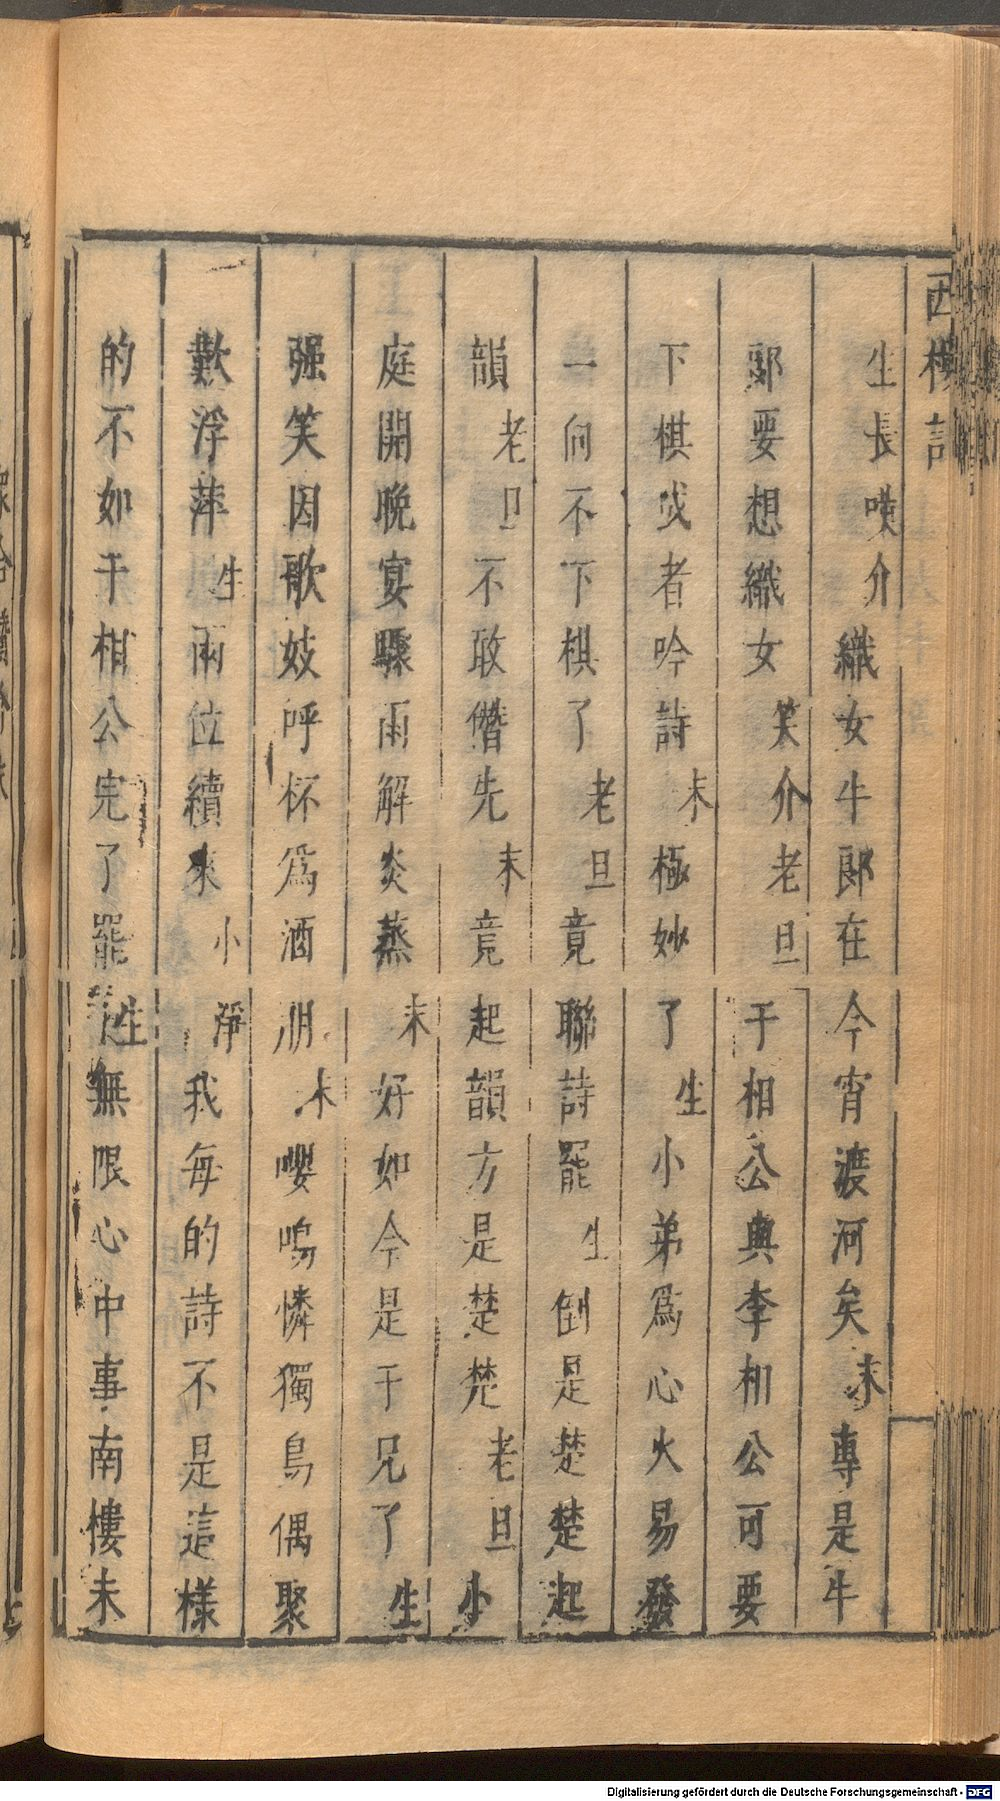 西樓記
生長嘆介織女牛郎在今宵渡河矣末專是牛
郎要想織女笑介老旦于相公與李相公可要
下棋或者吟詩末極妙了生小弟爲心火易發
一向不下棋了老旦竟聯詩罷生倒是楚楚起
韻老旦不敢僭先末竟起韻方是楚楚老旦小
庭開晚宴驟雨解炎蒸末好如今是于兄了生
强笑因歌妓呼杯爲酒朋末嚶鳴憐獨鳥偶聚
歎浮萍生兩位續來小淨我每的詩不是這樣
的不如于相公完了罷生無限心中事南樓未
Digitalisierung gefördert durch die Deutsche Forschungsgemeinschaft - DFG